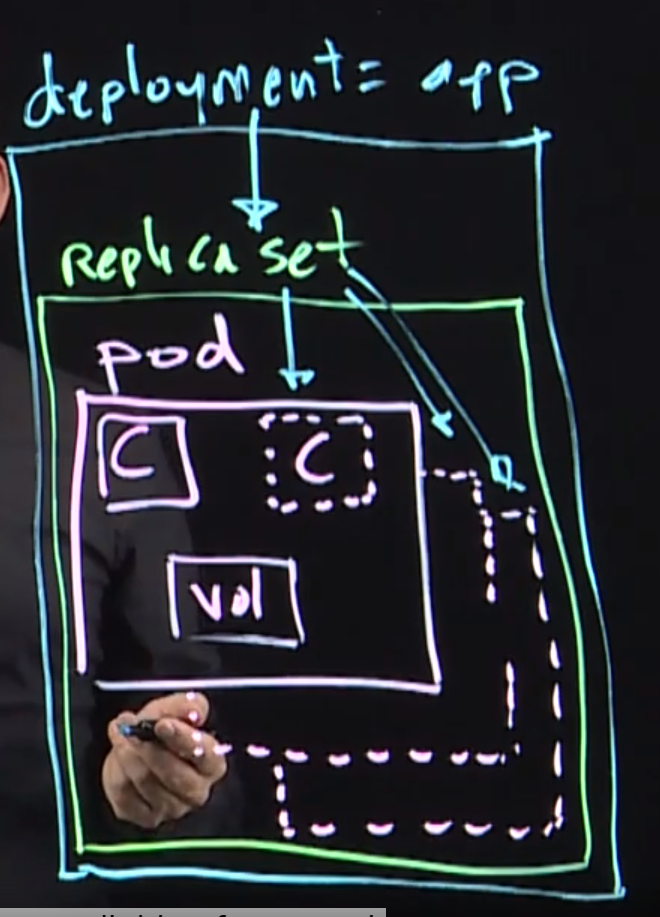 deployment = app
Replica set
pod
C C
vol